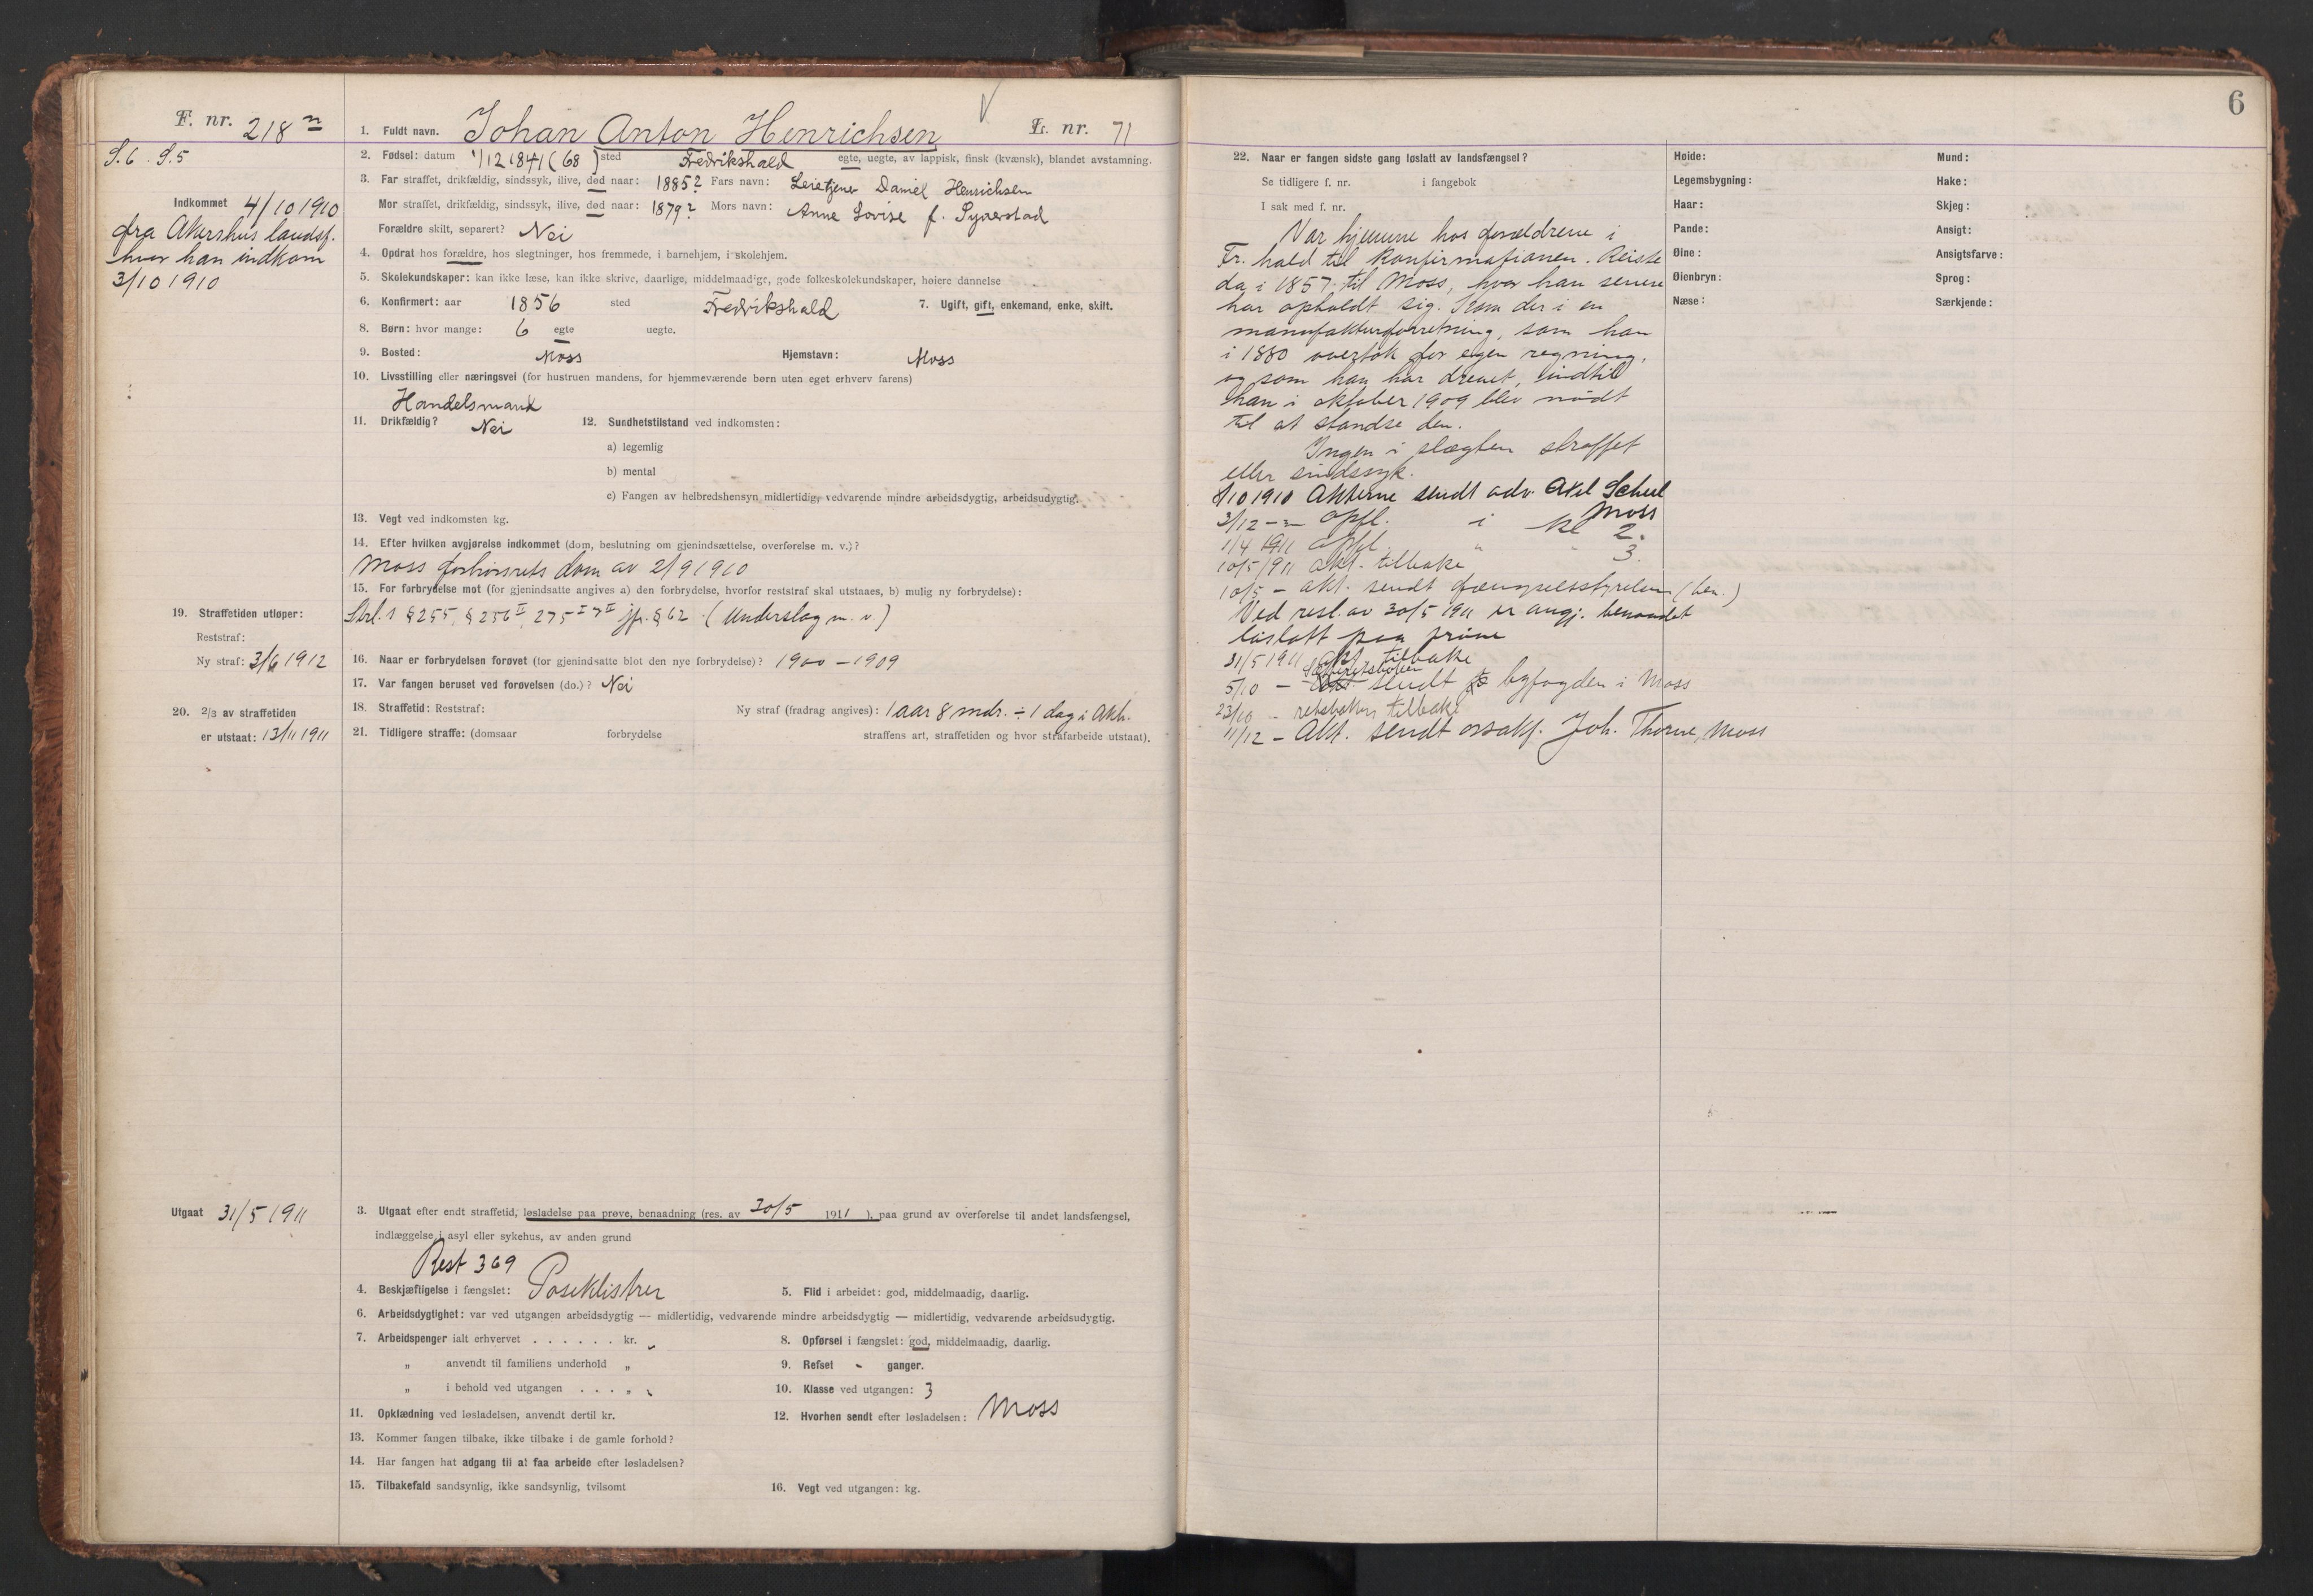 F. nr. 218
S.6. S.5
Indkommet 4/10 1910
fra Akershus landsf.
hvor han indkom
3/10 1910
1. Fuldt navn. Johan Anton Henrichsen L. nr. 71
2. Fødsel: datum 1/12 1841 (68) sted Fredrikshald egte, uegte, av lappisk, finsk (kvænsk), blandet avstamning.
3. Far straffet, drikfældig, sindssyk, ilive, død naar: 1885? Fars navn: Leietjener Daniel Henrichsen
Mor straffet, drikfældig, sindssyk, ilive, død naar: 1879? Mors navn: Anne Lovise f.
Forældre skilt, separert? Nei
4. Opdrat hos forældre, hos slegtninger, hos fremmede, i barnehjem, i skolehjem.
5. Skolekundskaper: kan ikke læse, kan ikke skrive, daarlige, middelmaadige, gode folkeskolekundskaper, høiere dannelse
6. Konfirmert: aar 1856 sted Fredrikshald 7. Ugift, gift, enkemand, enke, skilt.
8. Børn: hvor mange: 6 egte uegte.
9. Bosted: Moss Hjemstavn: Moss
10. Livsstilling eller næringsvei (for hustruen mandens, for hjemmeværende børn uten eget erhverv farens)
Handelsmand
11. Drikfældig? Nei 12. Sundhetstilstand ved indkomsten:
a) legemlig
b) mental
c) Fangen av helbredshensyn midlertidig, vedvarende mindre arbeidsdygtig, arbeidsudygtig.
13. Vegt ved indkomsten kg.
14. Efter hvilken avgjørelse indkommet (dom, beslutning om gjenindsættelse, overførelse m. v.)?
Moss forhørsrets dom av 2/9 1910
15. For forbrydelse mot (for gjenindsatte angives a) den forbrydelse, hvorfor reststraf skal utstaaes, b) mulig ny forbrydelse):
Strl.s § 255, § 256 II, 275 I & II jfr. § 62. (Underslag m. v)
19. Straffetiden utløper:
Reststraf:
Ny straf: 3/6 1912
16. Naar er forbrydelsen forøvet (for gjenindsatte blot den nye forbrydelse)? 1900 - 1909
17. Var fangen beruset ved forøvelsen (do.)? Nei
18. Straffetid: Reststraf: Ny straf (fradrag angives): 1 aar 8 mdr. ÷ 1 dag i Akh.
20. 2/3 av straffetiden
er utstaat: 13/11 1911
21. Tidligere straffe: (domsaar forbrydelse straffens art, straffetiden og hvor strafarbeide utstaat).
Utgaat 31/5 1911
3. Utgaat efter endt straffetid, løsladelse paa prøve, benaadning (res. av 30/5 1911), paa grund av overførelse til andet landsfængsel,
indlæggelse i asyl eller sykehus, av anden grund
Rest 369
4. Beskjæftigelse i fængslet: Poseklistrer 5. Flid i arbeidet: god, middelmaadig, daarlig.
6. Arbeidsdygtighet: var ved utgangen arbeidsdygtig — midlertidig, vedvarende mindre arbeidsdygtig — midlertidig, vedvarende arbeidsudygtig.
7. Arbeidspenger ialt erhvervet . . . . . . kr. 8. Opførsel i fængslet: god, middelmaadig, daarlig.
„ anvendt til familiens underhold „ 9. Refset - ganger.
„ i behold ved utgangen . . . „ 10. Klasse ved utgangen: 3
11. Opklædning ved løsladelsen, anvendt dertil kr. 12. Hvorhen sendt efter løsladelsen: Moss
13. Kommer fangen tilbake, ikke tilbake i de gamle forhold?
14. Har fangen hat adgang til at faa arbeide efter løsladelsen?
15. Tilbakefald sandsynlig, ikke sandsynlig, tvilsomt 16. Vegt ved utgangen: kg.
6
22. Naar er fangen sidste gang løslatt av landsfængsel?
Se tidligere f. nr. i fangebok
I sak med f. nr.
Var hjemme hos forældrene i
Fr.hald til konfirmationen. Reiste
da i 1857 til Moss, hvor han senere
har opholdt sig. Kom der i en
manufakturforretning, som han
i 1880 overtok for egen regning,
og som han har drevet, indtil
han i oktober 1909 blev nødt
til at standse den.
Ingen i slægten straffet
eller sindssyk.
/10 1910 Akterne sendt adv. Axel Scheel
Moss
3/12 - opfl. i kl 2.
1/4 1911 opfl. " " 3.
10/5 1911 akt. tilbake
10/5 - akt. sendt fængselsstyrelsen (ben.)
Ved resl. av 30/5 1911 er angj. benaadet
løslatt paa prøve
31/5 1911 akt. tilbake
5/10 - sendt byfogden i Moss
23/10 - retsboken tilbake
11/12 - Akt. sendt ovsakf. Joh. Thorne, Moss
Høide: Mund:
Legemsbygning: Hake:
Haar: Skjeg:
Pande: Ansigt:
Øine: Ansigtsfarve:
Øienbryn: Sprog:
Næse: Særkjende: